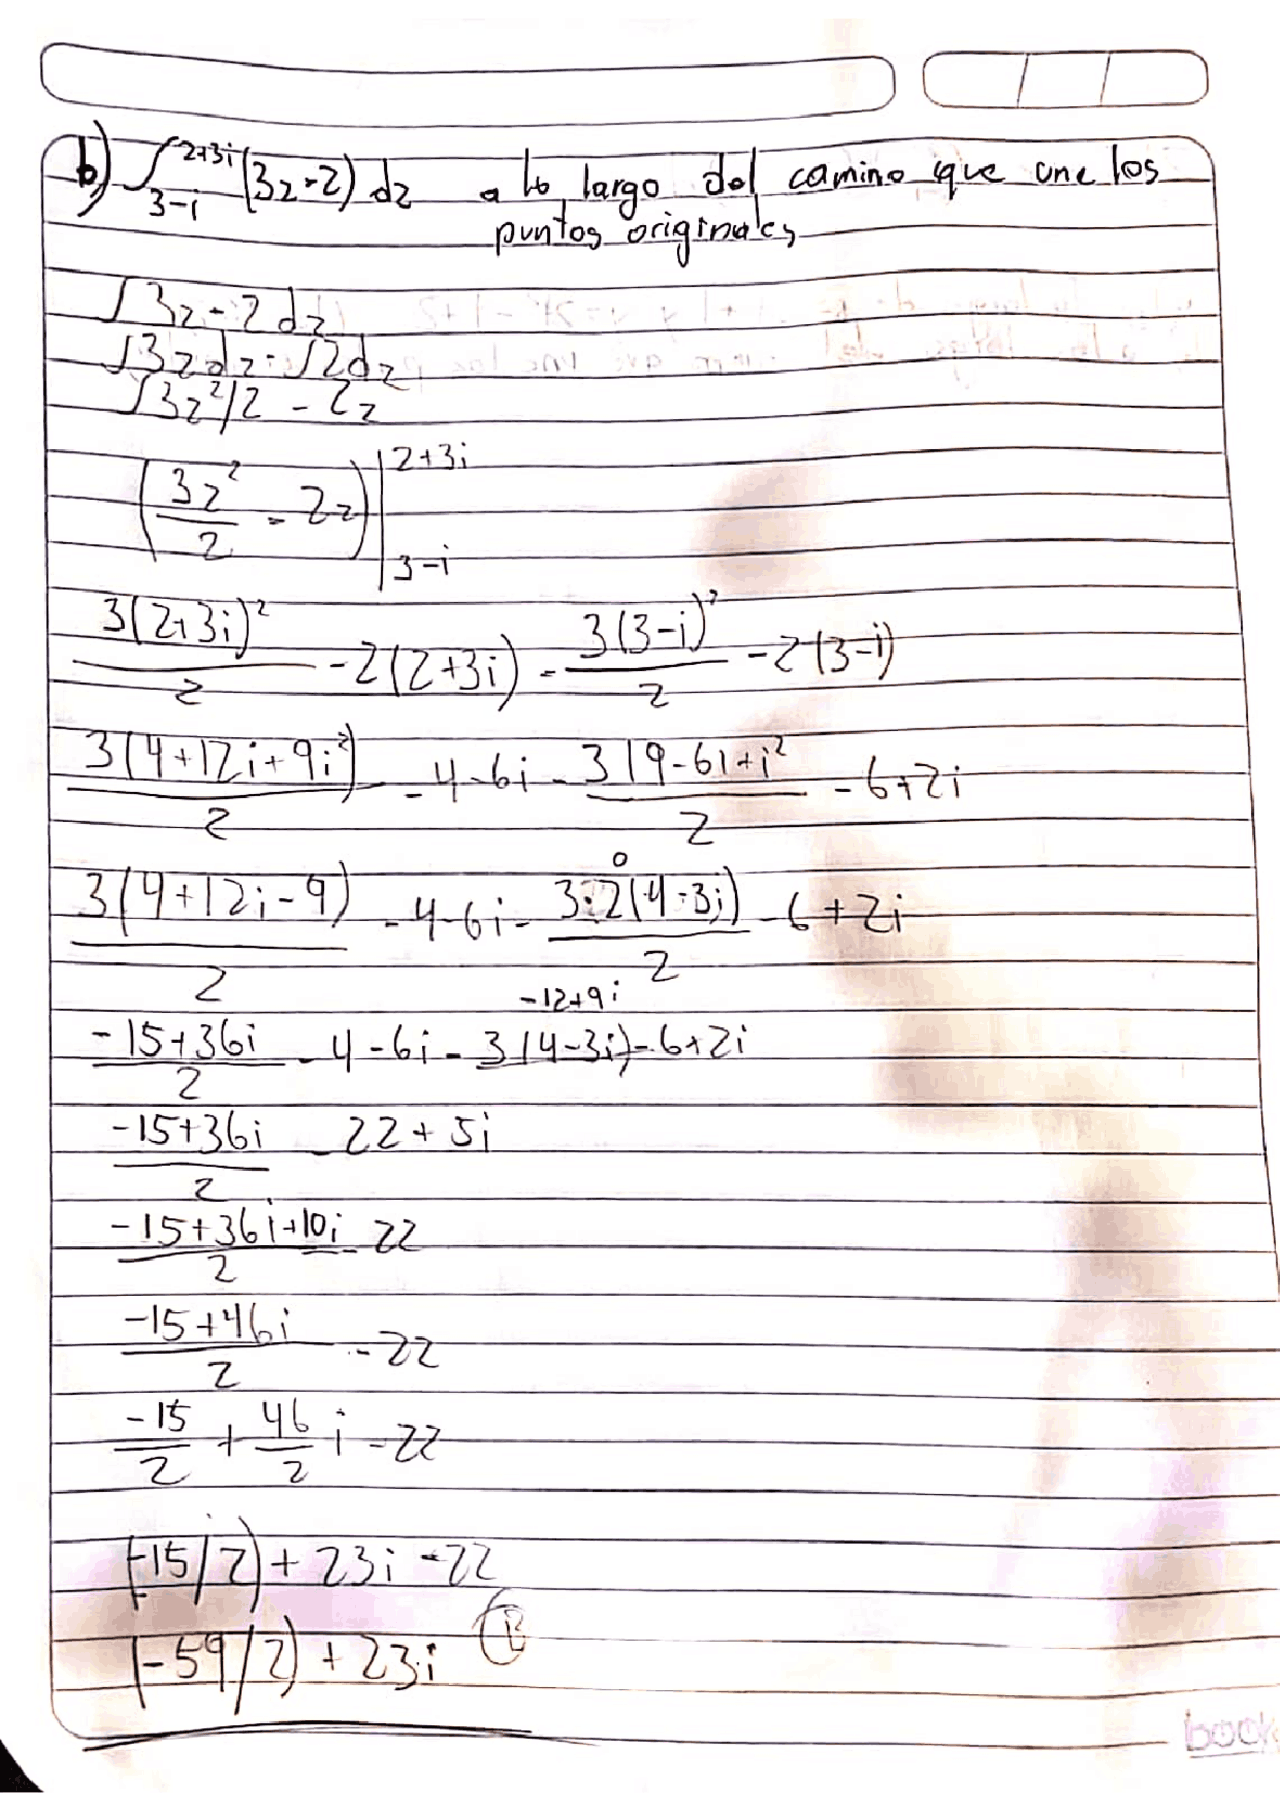 b) ∫_{3-i}^{2+3i} (3z-2) dz a lo largo del camino que une los
puntos originales
∫3z-2dz
∫3zdz-∫2dz
∫3z²/2 - 2z
(3z²/2 - 2z)|_{3-i}^{2+3i}
3(2+3i)²/2 -2(2+3i) - 3(3-i)²/2 -2(3-i)
3(4+12i+9i²)/2 -4-6i - 3(9-6i+i²/2 -6+2i
3(4+12i-9)/2 -4-6i- 3·2(4-3i)/2 -6+2i
-12+9i
-15+36i/2 -4-6i-3(4-3i)-6+2i
-15+36i/2 -22+5i
-15+36i+10i/2 -22
-15+46i/2 -22
-15/2 + 46/2 i -22
(-15/2)+23i-22
(-59/2)+23i
book